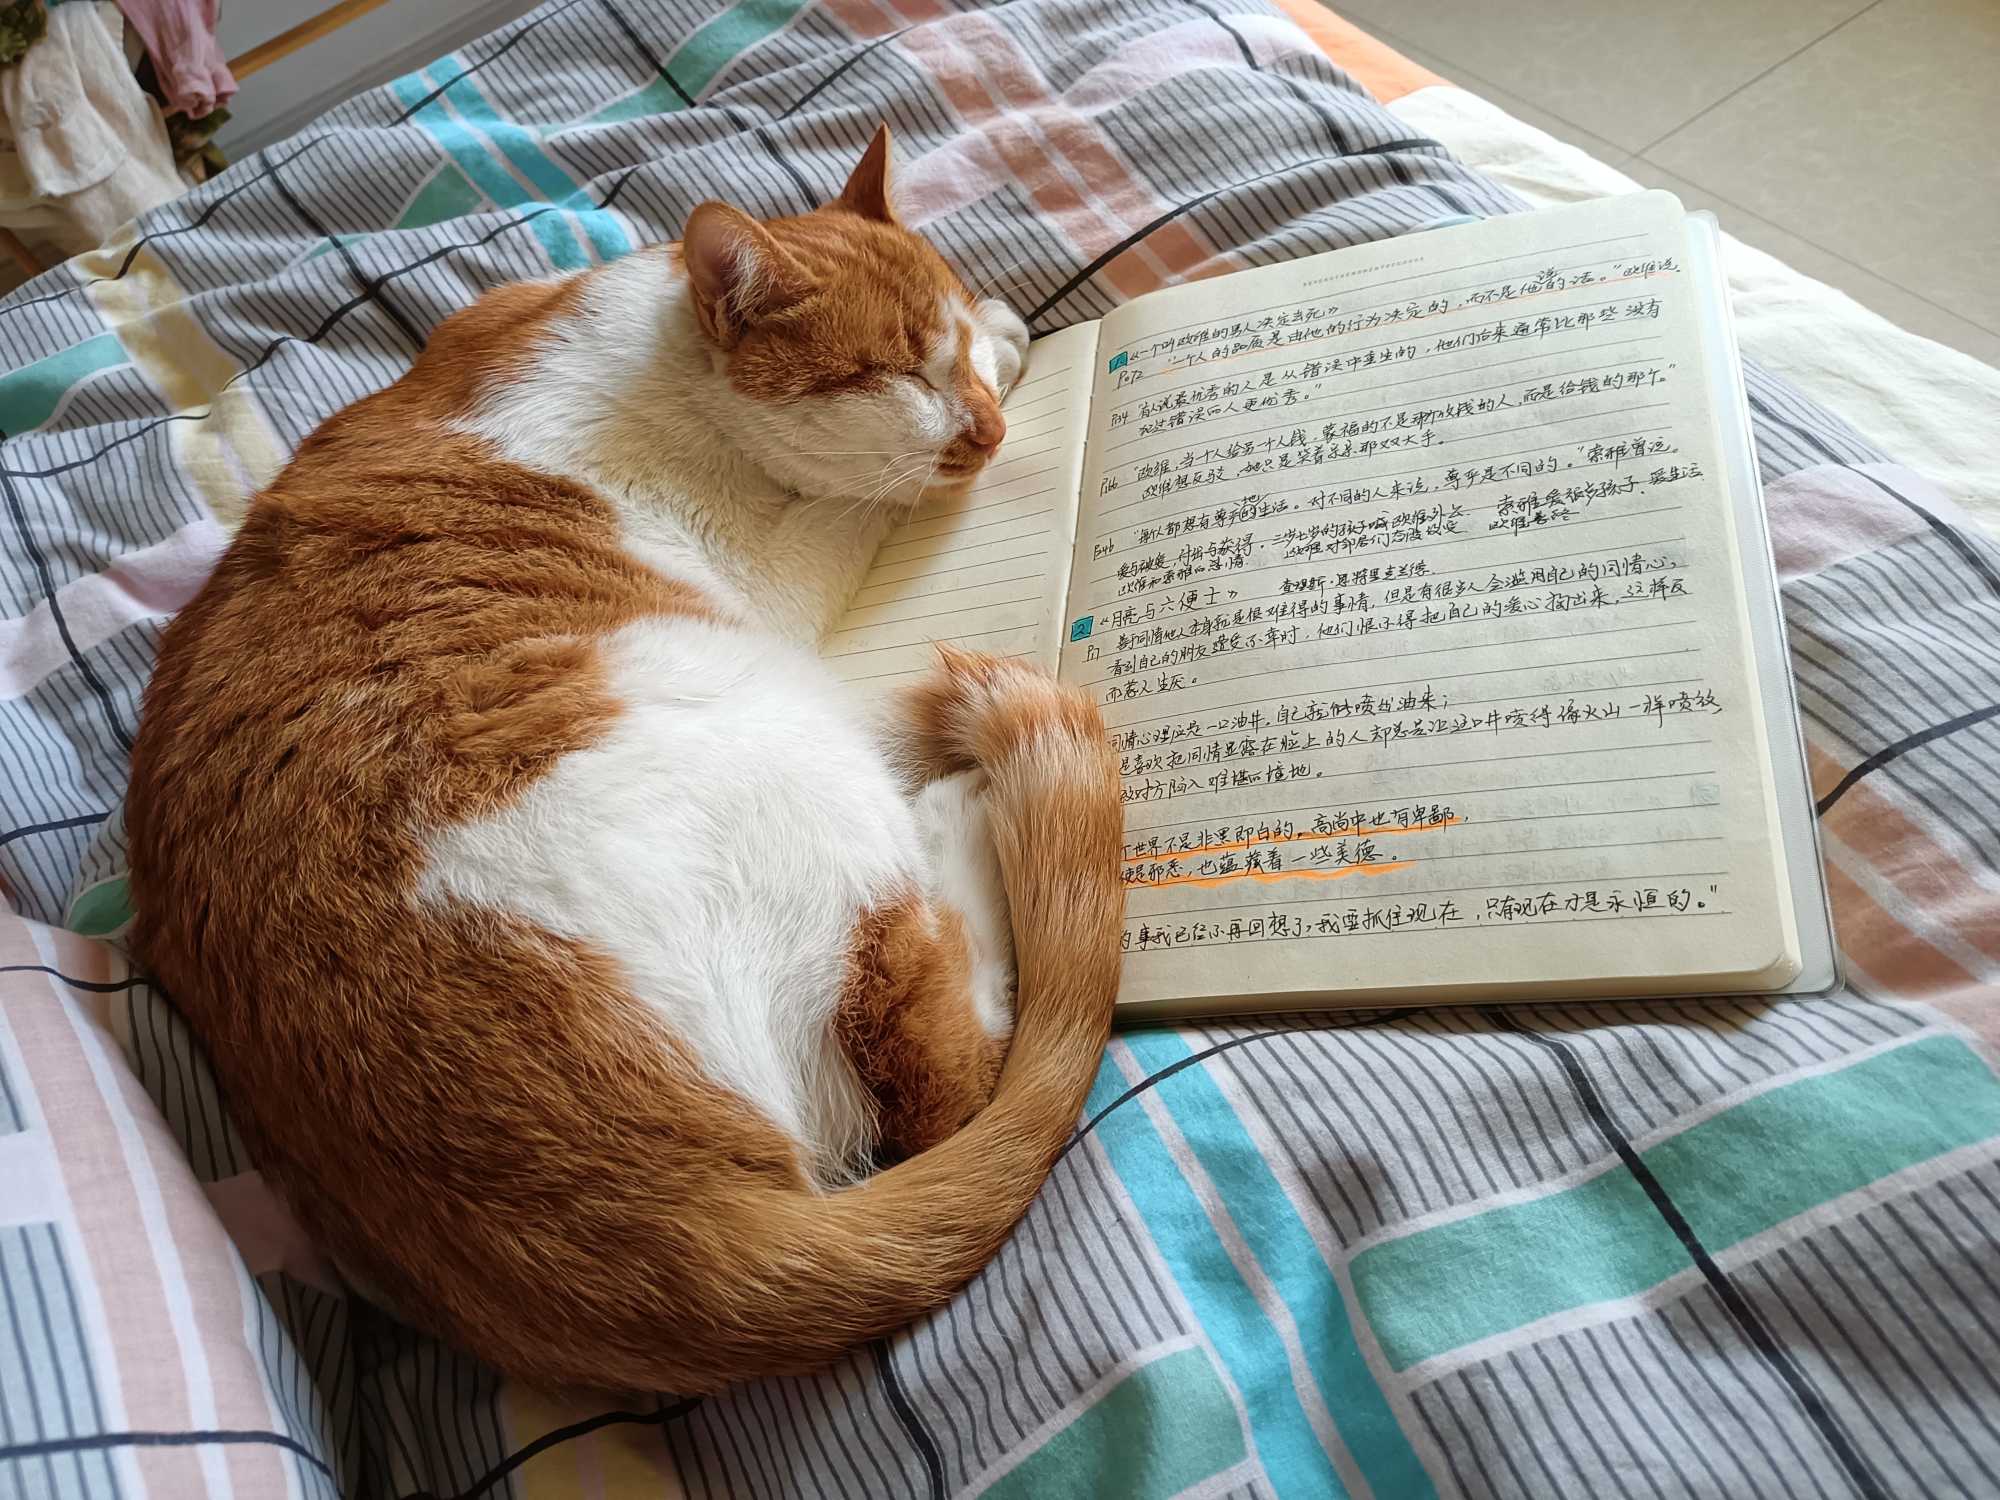 1. 《一个叫欧维的男人决定去死》
P072 "一个人的品质是由他的行为决定的，而不是他说的话。"欧维说。
P84 "有人说最优秀的人是从错误中重生的，他们后来通常比那些没有
犯过错误的人更优秀。"
P166 "欧维，当一个人给另一个人钱，蒙福的不是那个收钱的人，而是给钱的那个。"
欧维想反驳，她只是笑着亲亲那双大手。
"每个人都想有尊严地生活。对不同的人来说，尊严是不同的。"索雅曾说。
爱与被爱，付出与获得。三岁七岁的孩子喊欧维外公 索雅爱很多孩子，爱生活
欧维和索雅的爱情 欧维对邻居们态度改变 欧维善终
2 《月亮与六便士》 查理斯·思特里克兰德
善于同情他人本身就是很难得的事情，但是有很多人会滥用自己的同情心，
看到自己的朋友遭受不幸时，他们恨不得把自己的爱心掏出来，这样反
而惹人生厌。
同情心理应是一口油井，自己就能喷出油来；
是喜欢把同情显露在脸上的人却总是让这口井喷得像火山一样喷放，
对方陷入难堪的境地。
个世界不是非黑即白的，高尚中也有卑鄙，
使是邪恶，也蕴藏着一些美德。
的事我已经不再回想了，我要抓住现在，只有现在才是永恒的。"